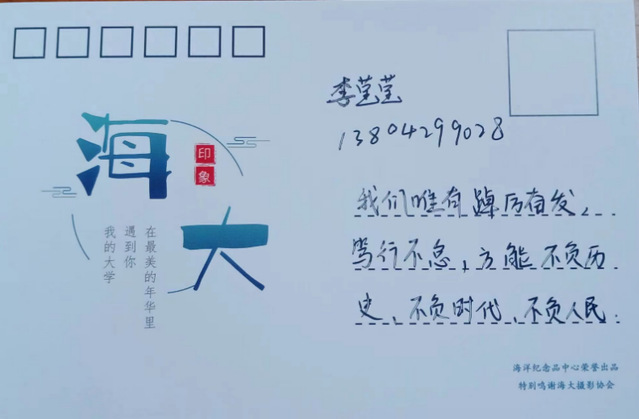 海大
印象
在最美的年华里
遇到你
我的大学
李莹莹
13804299028
我们唯有踔厉奋发、
笃行不怠，方能不负历
史、不负时代、不负人民.
海洋纪念品中心荣誉出品
特别鸣谢海大摄影协会